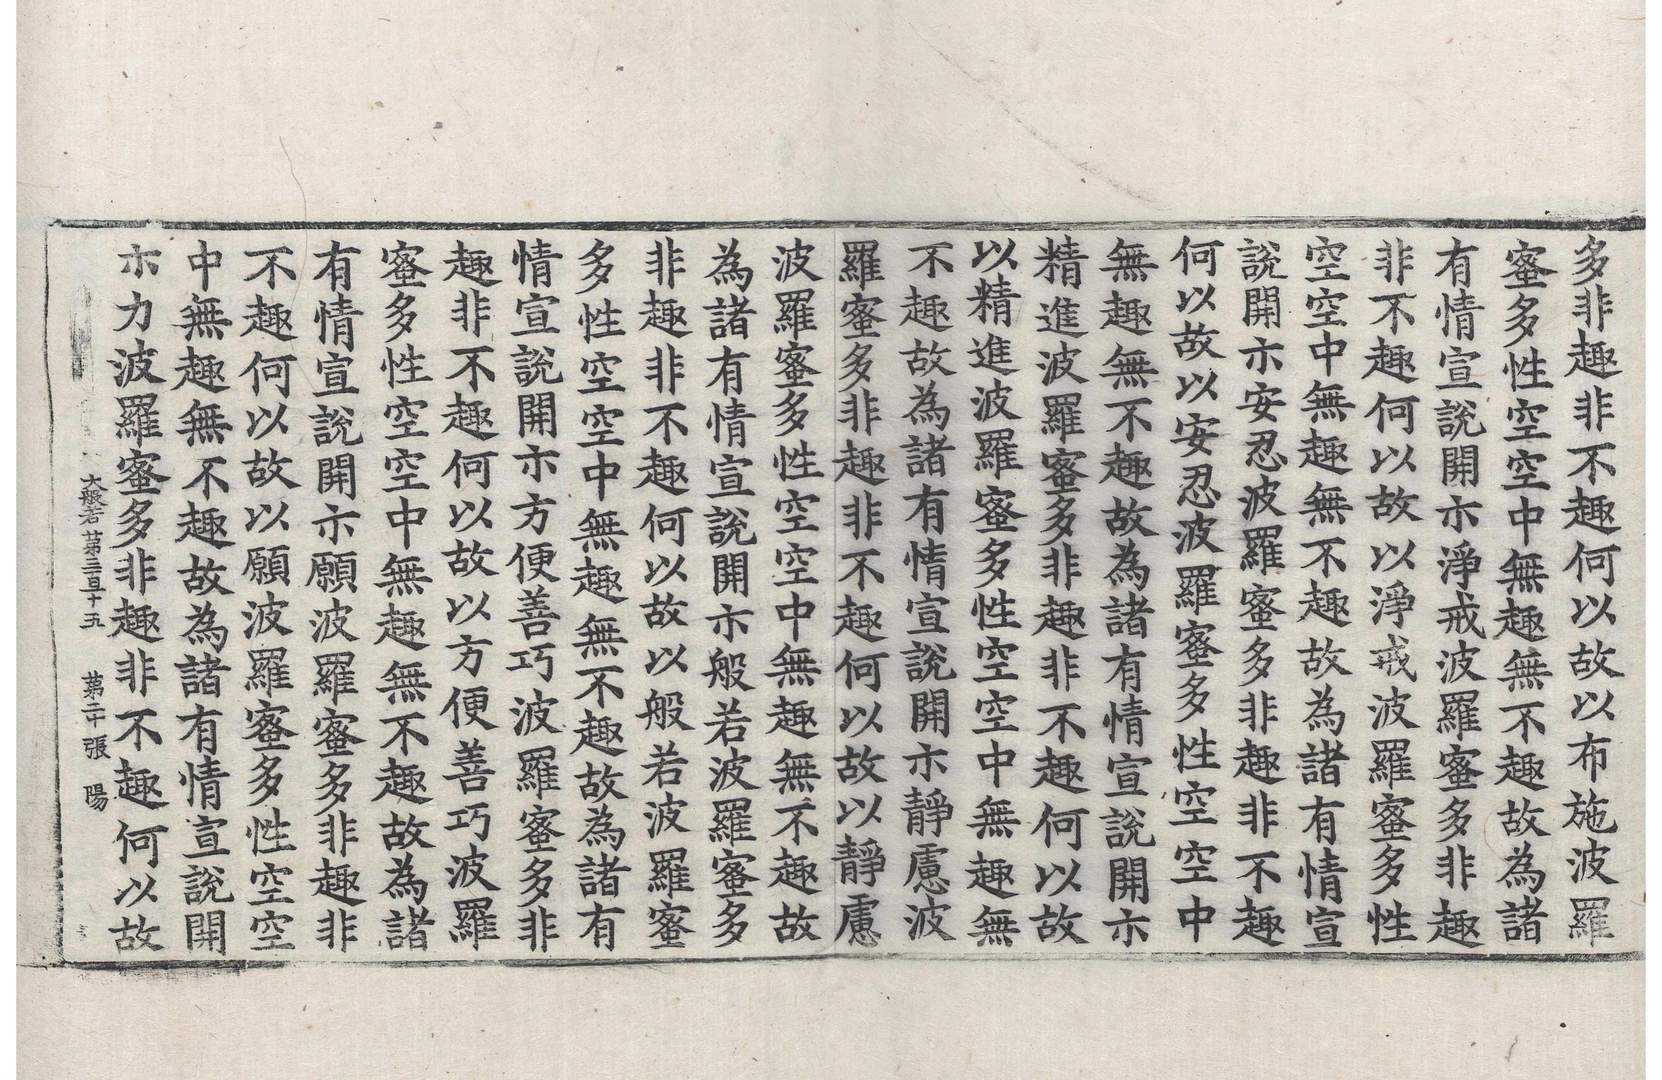 多非趣非不趣何以故以布施波羅
蜜多性空空中無趣無不趣故為諸
有情宣說開示淨戒波羅蜜多非趣
非不趣何以故以淨戒波羅蜜多性
空空中無趣無不趣故為諸有情宣
說開示安忍波羅蜜多非趣非不趣
何以故以安忍波羅蜜多性空空中
無趣無不趣故為諸有情宣說開示
精進波羅蜜多非趣非不趣何以故
以精進波羅蜜多性空空中無趣無
不趣故為諸有情宣說開示靜慮波
羅蜜多非趣非不趣何以故以靜慮
波羅蜜多性空空中無趣無不趣故
為諸有情宣說開示般若波羅蜜多
非趣非不趣何以故以般若波羅蜜
多性空空中無趣無不趣故為諸有
情宣說開示方便善巧波羅蜜多非
趣非不趣何以故以方便善巧波羅
蜜多性空空中無趣無不趣故為諸
有情宣說開示願波羅蜜多非趣非
不趣何以故以願波羅蜜多性空空
中無趣無不趣故為諸有情宣說開
示力波羅蜜多非趣非不趣何以故
大般若苐三百十五 苐二十張 陽